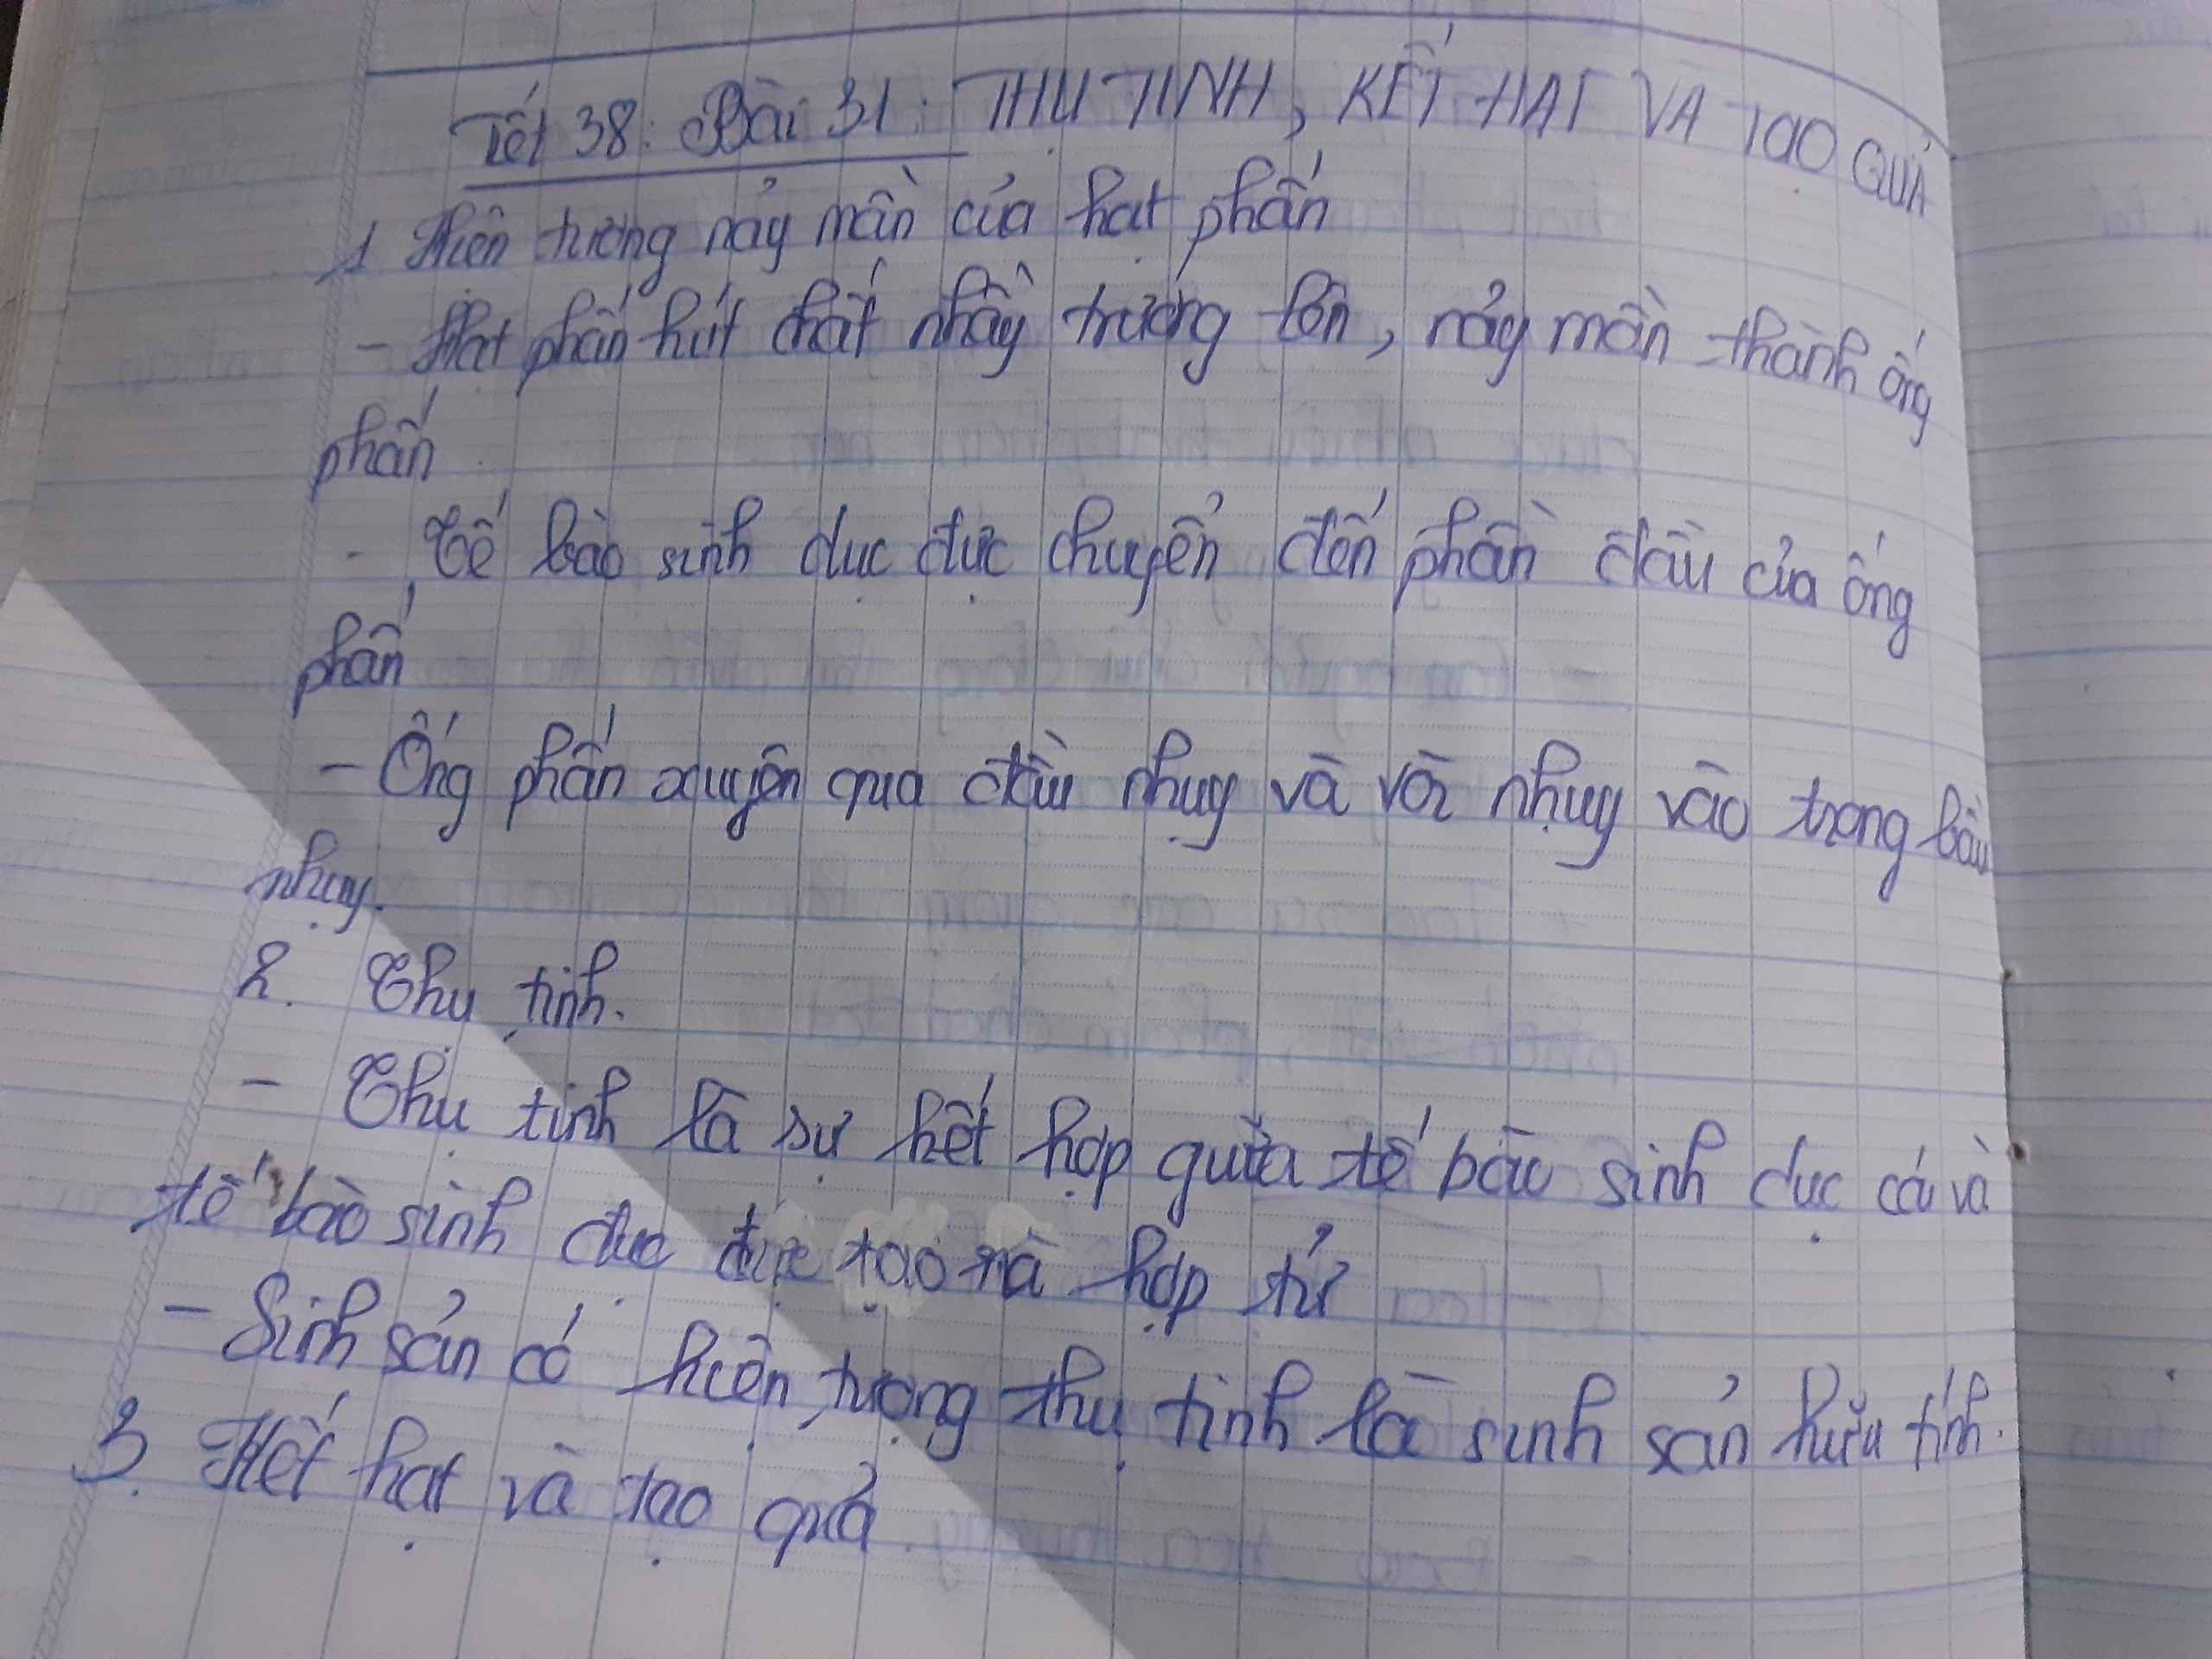 Tiết 38: Bài 31: THỤ TINH, KẾT HẠT VÀ TẠO QUẢ
1 Hiện tượng nảy mần của hạt phấn
- Hạt phấn hút chất nhầy trương lên, nảy mần thành ống
phấn
- Tế bào sinh dục đực chuyển đến phần đầu của ống
phấn
- Ống phấn xuyên qua đầu nhụy và vòi nhụy vào trong bầu
nhụy.
2. Thụ tinh.
- Thụ tinh là sự kết hợp giữa tế bào sinh dục cái và
tế bào sinh dục đực tạo rà hợp tử
- Sinh sản có hiện tượng thụ tinh là sinh sản hữu tính.
3. Kết hạt và tạo quả.